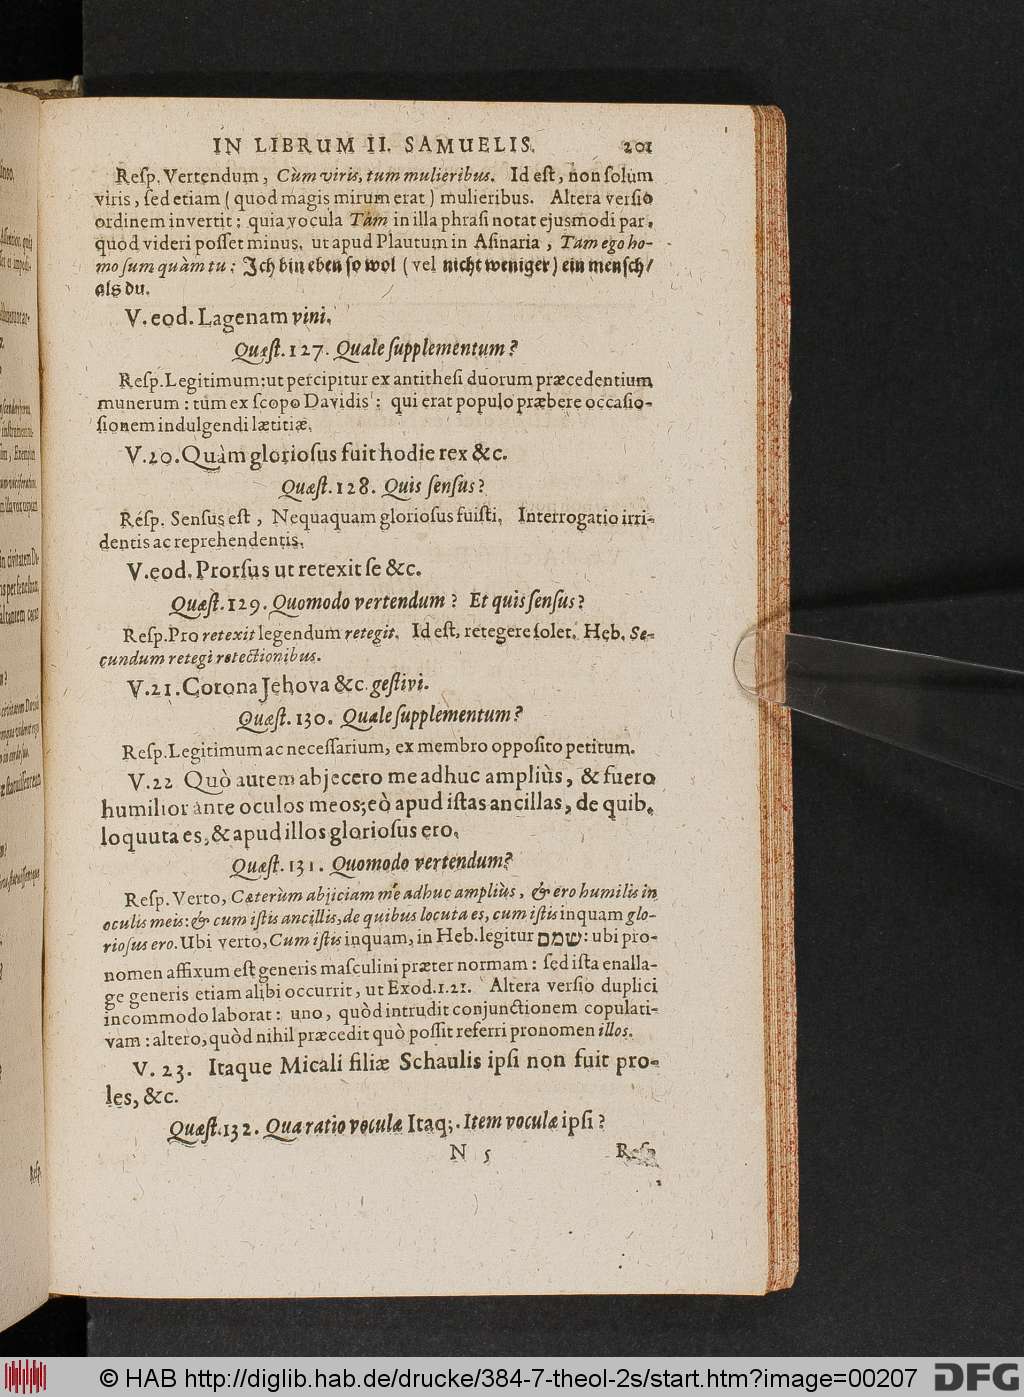 IN LIBRUM II. SAMUELIS. 201
Reſp. Vertendum, Cùm viris, tum mulieribus. Id eſt, non ſolùm
viris, ſed etiam (quod magis mirum erat) mulieribus. Altera verſio
ordinem invertit: quia vocula Tàm in illa phraſi notat ejusmodi par,
quod videri poſſet minus, ut apud Plautum in Aſinaria, Tam ego ho-
mo ſum quàm tu: Ich bin eben ſo wol (vel nicht weniger) ein menſch/
als du.
V. eod. Lagenam vini.
Quæſt. 127. Quale ſupplementum?
Reſp. Legitimum: ut percipitur ex antitheſi duorum præcedentium
munerum: tum ex ſcopo Davidis: qui erat populo præbere occaſio-
ſionem indulgendi lætitiæ.
V. 20. Quàm glorioſus fuit hodie rex &c.
Quæſt. 128. Quis ſenſus?
Reſp. Senſus eſt, Nequaquam glorioſus fuiſti. Interrogatio irri-
dentis ac reprehendentis.
V. eod. Prorſus ut retexit ſe &c.
Quæſt. 129. Quomodo vertendum? Et quis ſenſus?
Reſp. Pro retexit legendum retegit. Id eſt, retegere ſolet. Heb. Se-
cundum retegi retectionibus.
V. 21. Corona Jehova &c. geſtivi.
Quæſt. 130. Quale ſupplementum?
Reſp. Legitimum ac neceſſarium, ex membro oppoſito petitum.
V. 22 Quò autem abjecero me adhuc ampliùs, & fuero
humilior ante oculos meos; eò apud iſtas ancillas, de quib.
loquuta es, & apud illos glorioſus ero.
Quæſt. 131. Quomodo vertendum?
Reſp. Verto, Cæterùm abjiciam me adhuc ampliùs, & ero humilis in
oculis meis: & cum iſtis ancillis, de quibus locuta es, cum iſtis inquam glo-
rioſus ero. Ubi verto, Cum iſtis inquam, in Heb. legitur שמם: ubi pro-
nomen affixum eſt generis maſculini præter normam: ſed iſta enalla-
ge generis etiam alibi occurrit, ut Exod. 1. 21. Altera verſio duplici
incommodo laborat: uno, quòd intrudit conjunctionem copulati-
vam: altero, quòd nihil præcedit quò poſſit referri pronomen illos.
V. 23. Itaque Micali filiæ Schaulis ipſi non fuit pro-
les, &c.
Quæſt. 132. Qua ratio voculæ Itaq;. Item voculæ ipſi?
N 5 Reſp.
© HAB http://diglib.hab.de/drucke/384-7-theol-2s/start.htm?image=00207
DFG